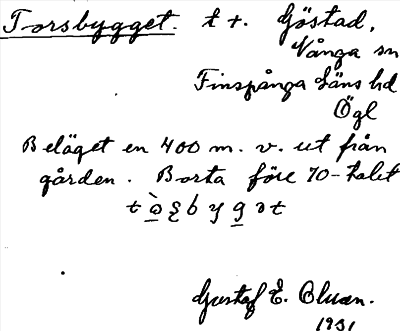 Torsbygget. t. t. Göstad,
Vånga sn
Finspånga läns hd
Ögl
Beläget en 400 m. v. ut från
gården. Borta före 70-talet
Gustaf E. Olsson.
1931